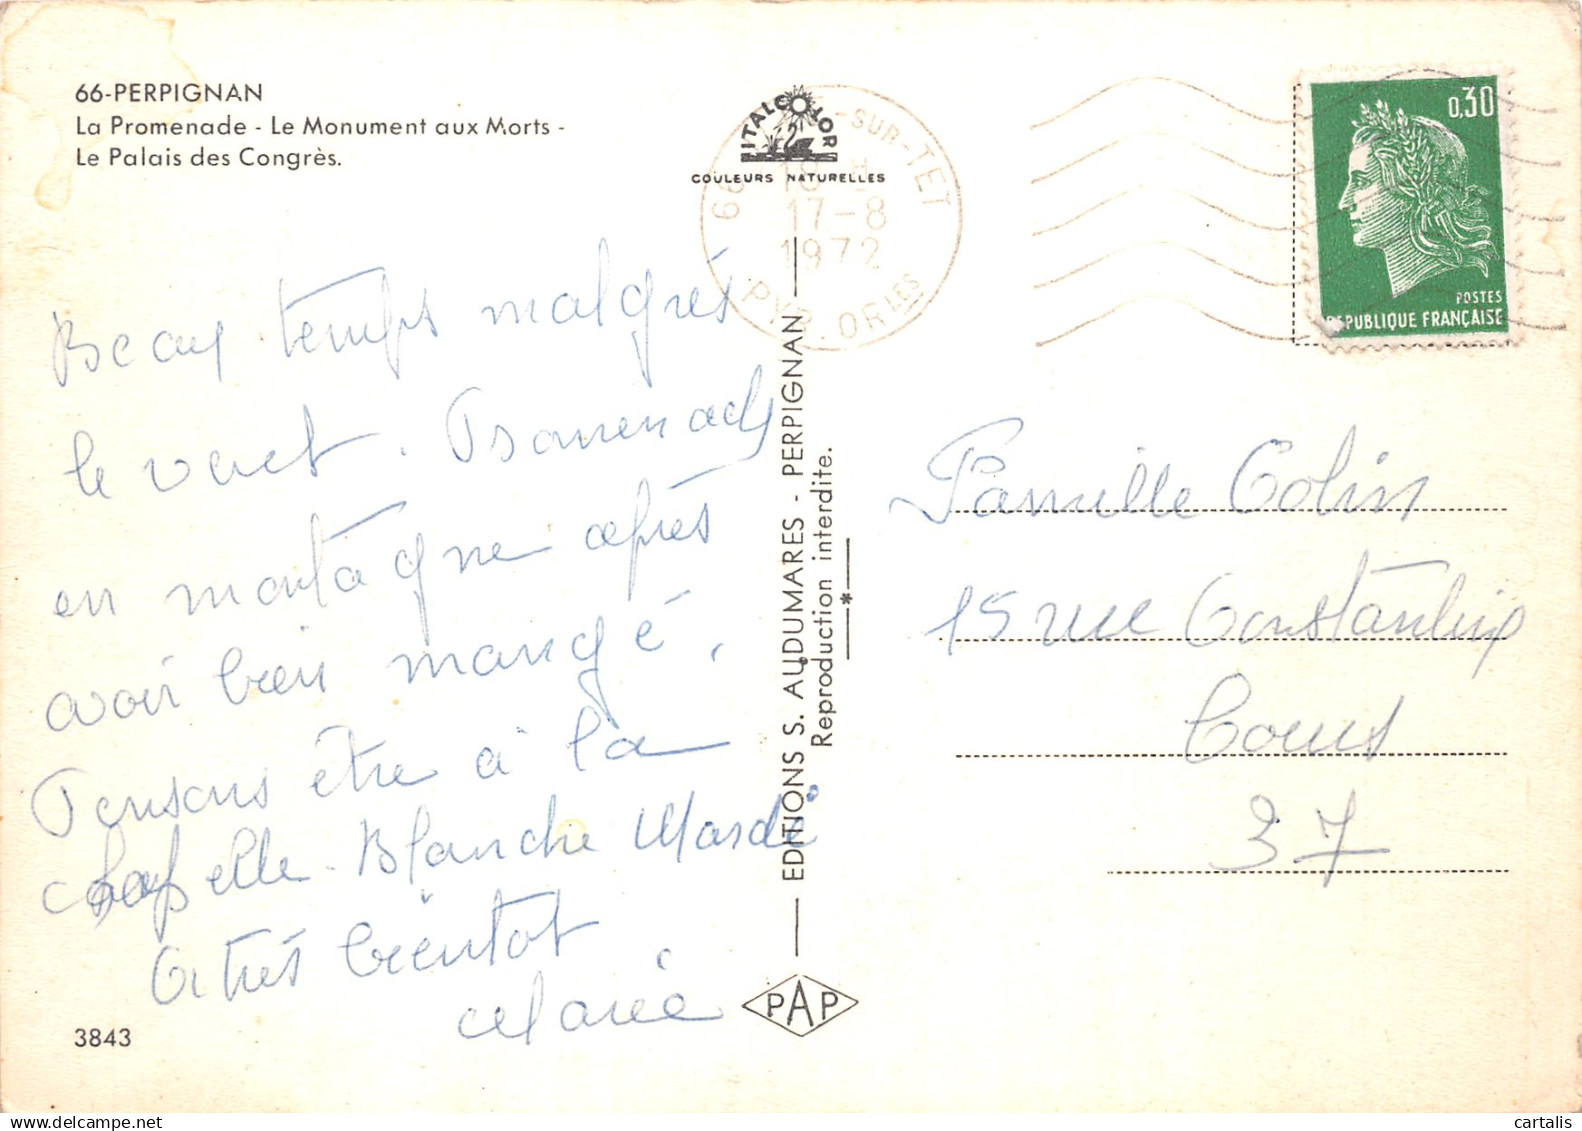 66-PERPIGNAN
La Promenade - Le Monument aux Morts -
Le Palais des Congrès.
ITALCOLOR
COULEURS NATURELLES
66 -SUR-TET
18 H
17-8
1972
PYR. ORLES
0,30
POSTES
REPUBLIQUE FRANÇAISE
Beau temps malgrés
le vent. Promenade
en montagne après
avoir bien mangé.
Pensons être à la
chapelle-Blanche Mardi
A très bientot
Marie
EDITIONS S. AUDUMARES - PERPIGNAN
Reproduction interdite.
*
Famille Colin
15 rue Constantine
Tours
37
PAP
3843
cartalis